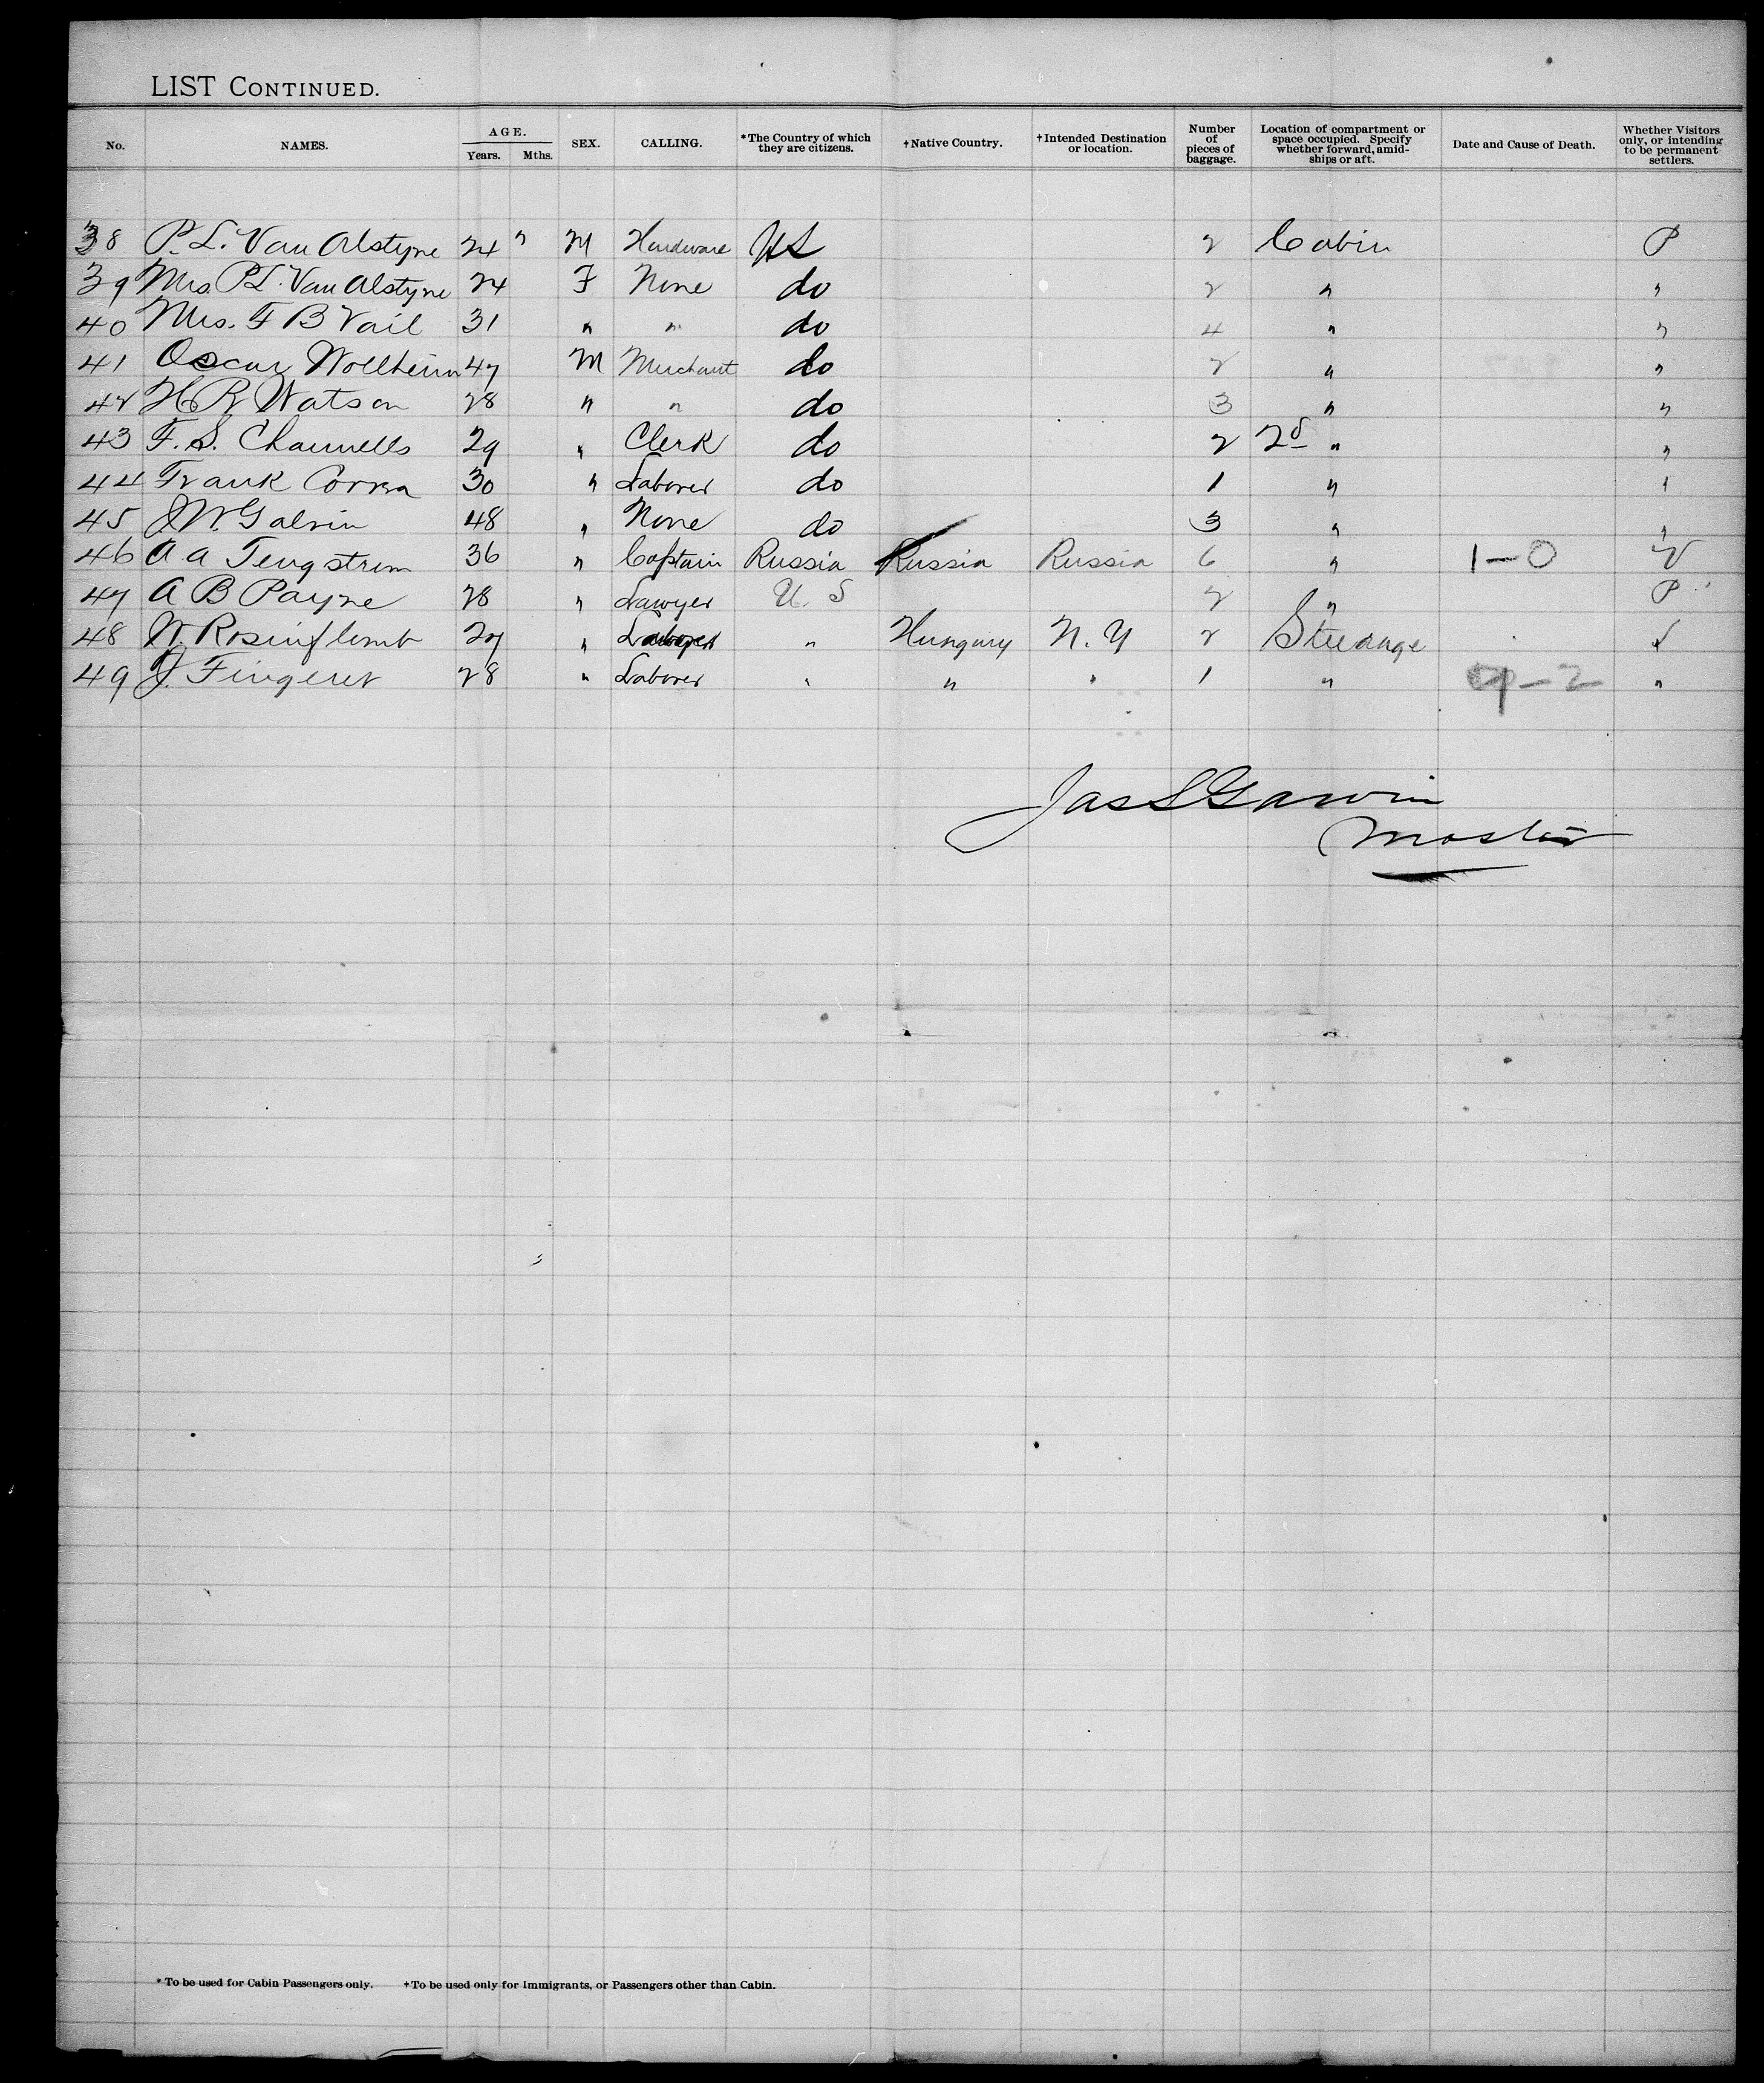 LIST CONTINUED.
No. NAMES. AGE. Years. Mths. SEX. CALLING. *The Country of which they are citizens. †Native Country. †Intended Destination or location. Number of pieces of baggage. Location of compartment or space occupied. Specify whether forward, amidships or aft. Date and Cause of Death. Whether Visitors only, or intending to be permanent settlers.
38 P. L. Van Alstyne 24 " M Hardware US 2 Cabin P
39 Mrs P L. Van Alstyne 24 F None do 2 " "
40 Mrs. F B Vail 31 " " do 4 " "
41 Oscar Wollheim 47 M Merchant do 2 " "
42 H R Watson 28 " " do 3 " "
43 F. S. Channells 29 " Clerk do 2 2d " "
44 Frank 30 " Laborer do 1 " "
45 J W. Galvin 48 " None do 3 " "
46 A A Tengstrom 36 " Captain Russia Russia Russia 6 " 1-0 V
47 A B Payne 28 " Lawyer U. S 2 " P
48 27 " " Hungary N. Y 2 Steerage
49 J. Fingerer 28 " Laborer " " " 1 " "
Jas S Garvin
Master
* To be used for Cabin Passengers only. †To be used only for Immigrants, or Passengers other than Cabin.